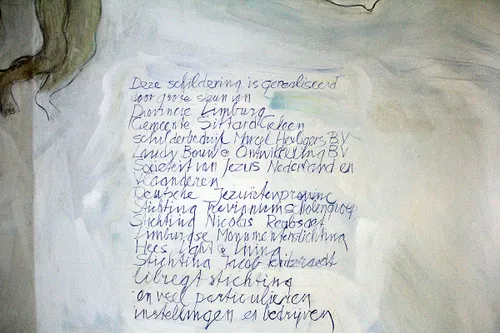 Deze schildering is gerealiseerd
door grote steun van
Provincie Limburg
Gemeente Sittard Geleen
schilderbedrijf Marcel Heiligers BV
Laudy Bouw & Ontwikkeling BV
Sociëteit van Jezus Nederland en
Vlaanderen
Deutsche Jezuitenprovinz
Stichting Trevianum scholengroep
Stichting Nicolas
Limburgse Monumentenstichting
Hees Light & Living
Stichting Jacob
Stichting
en veel particulieren
instellingen en bedrijven